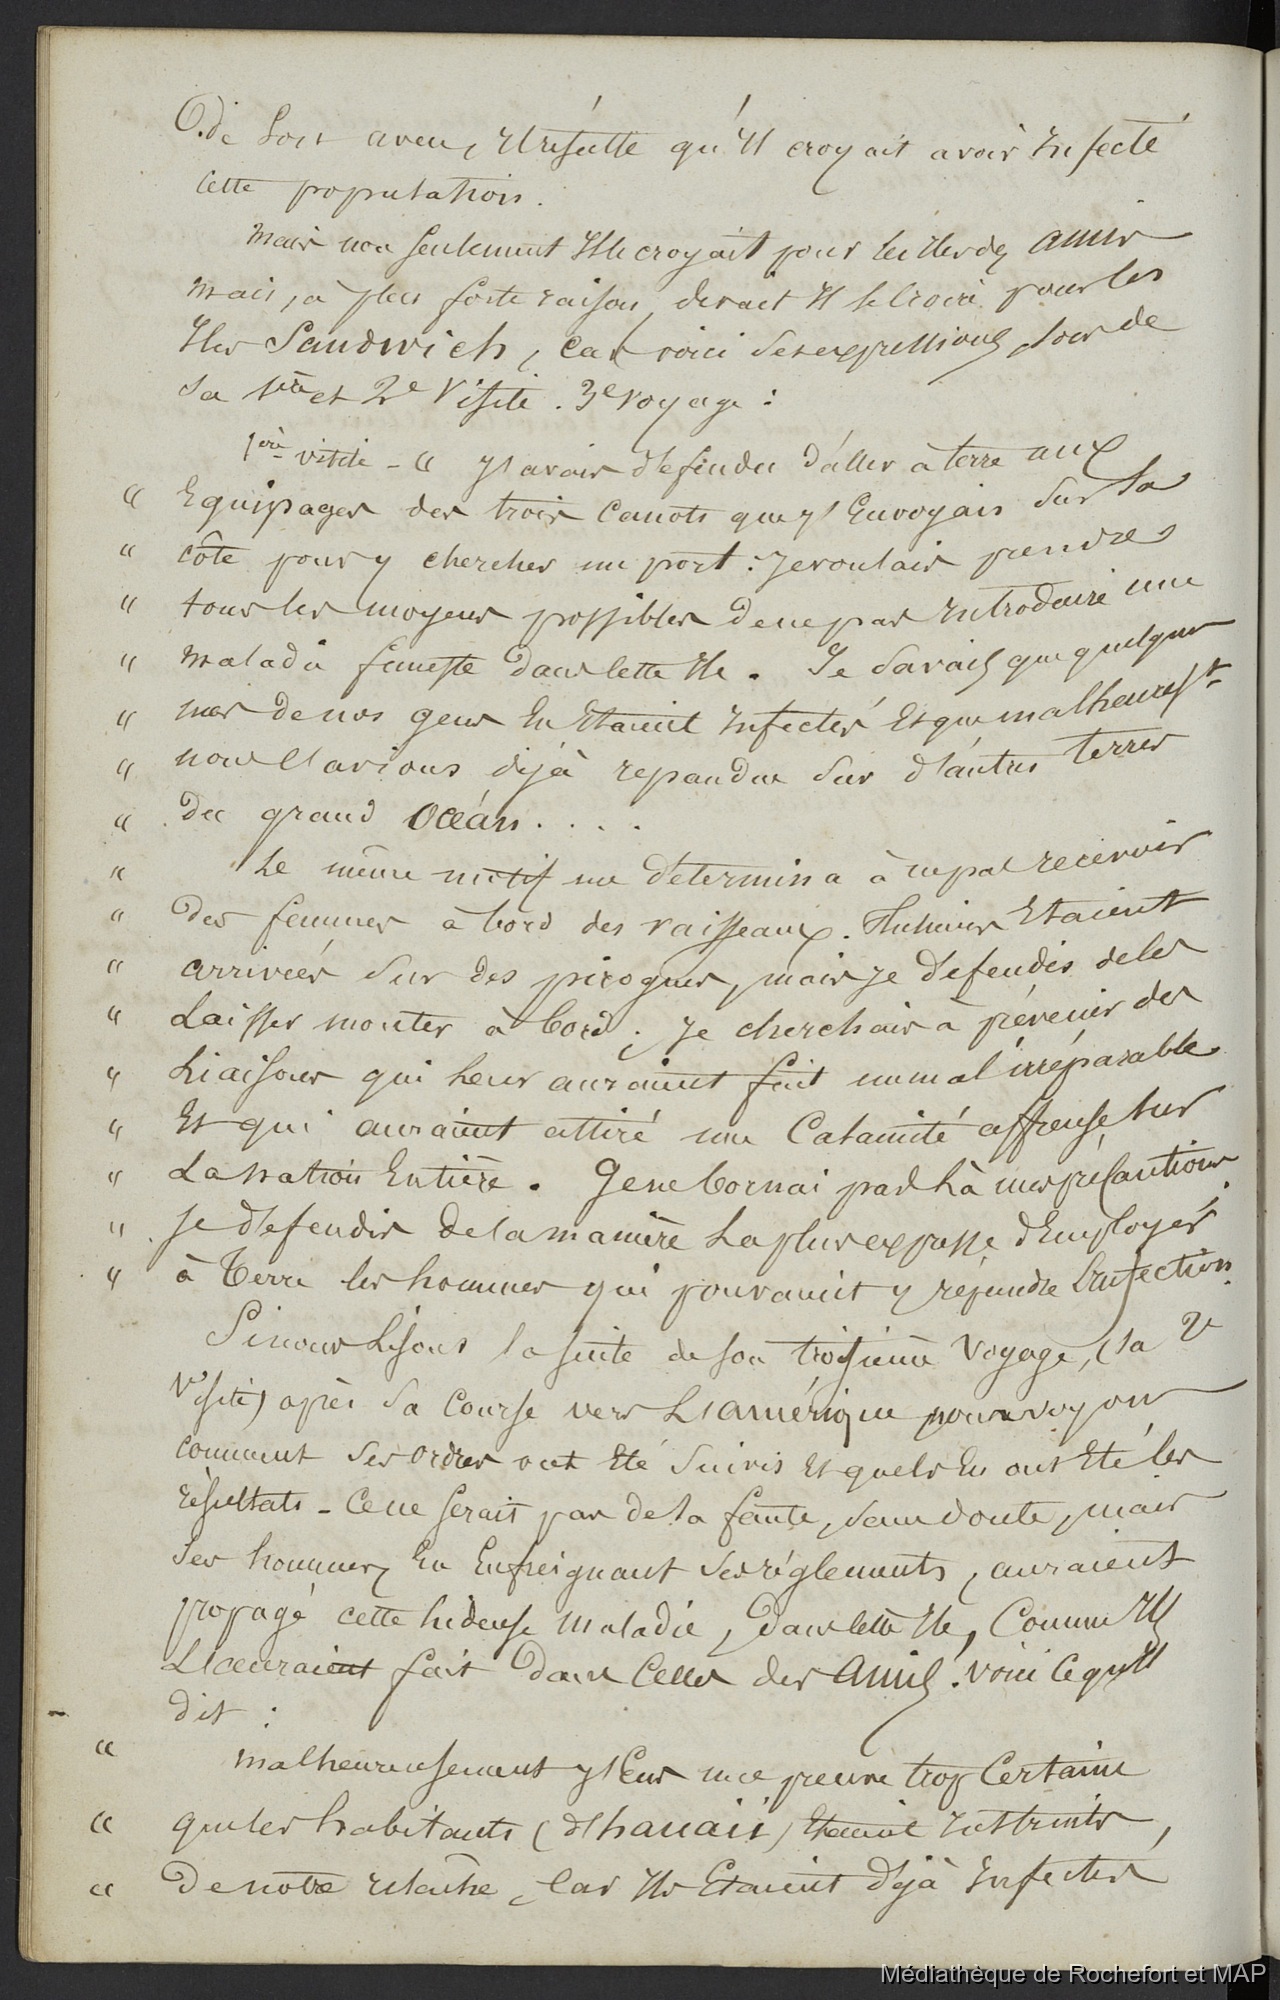 O. de son aveu, il résulte qu'il croyait avoir infecté
cette population.
Mais non seulement il le croyait pour les iles des amis
mais, à plus forte raison, devait il le croire pour les
Iles Sandwich, car voici ses expressions, lors de
sa 1ère et 2e visite. 3e voyage :
1ère visite - " J'avais défendu d'aller à terre aux
" Equipages des trois canots que j'Envoyais sur la
" côte pour y chercher un port : je voulais prendre
" tous les moyens possibles de ne pas introduire une
" maladie funeste dans cette Ile. Je savais que quelques
" uns de nos gens En Etaient infectés Et que malheureust
" nous l'avions déjà repandue sur d'autres terres
" du grand Océan . . . .
" Le même motif me détermina à ne pas recevoir
" des femmes à bord des vaisseaux. Plusieurs Etaient
" arrivées sur des pirogues, mais je défendis de les
" Laisser monter à bord ; je cherchais à prévenir des
" Liaisons qui leur auraient fait un mal irréparable
" Et qui auraient attiré une Calamité affreuse sur
" La nation Entière. Je ne bornai pas là mes précautions.
" Je défendis de la manière La plus expresse d'Employer
" à Terre les hommes qui pouvaient y répandre l'infection.
Si nous Lisons la suite de son troisième Voyage, (sa 2e
Visite) après sa Course vers L'amérique nous voyons
comment ses ordres ont Eté suivis Et quels En ont Eté les
résultats - Ce ne serait pas de sa faute, sans doute, mais
ses hommes, En Enfreignant ses réglements, auraient
propagé cette hideuse maladie, dans cette Ile, Comme ils
L'auraient fait dans Celles des Amis. voici ce qu'il
dit :
" malheureusement j'Eus une preuve trop Certaine
" que les habitants (d'hauaii) Etaient instruits,
" De notre relâche, Car Ils Etaient déjà infectés
Médiathèque de Rochefort et MAP